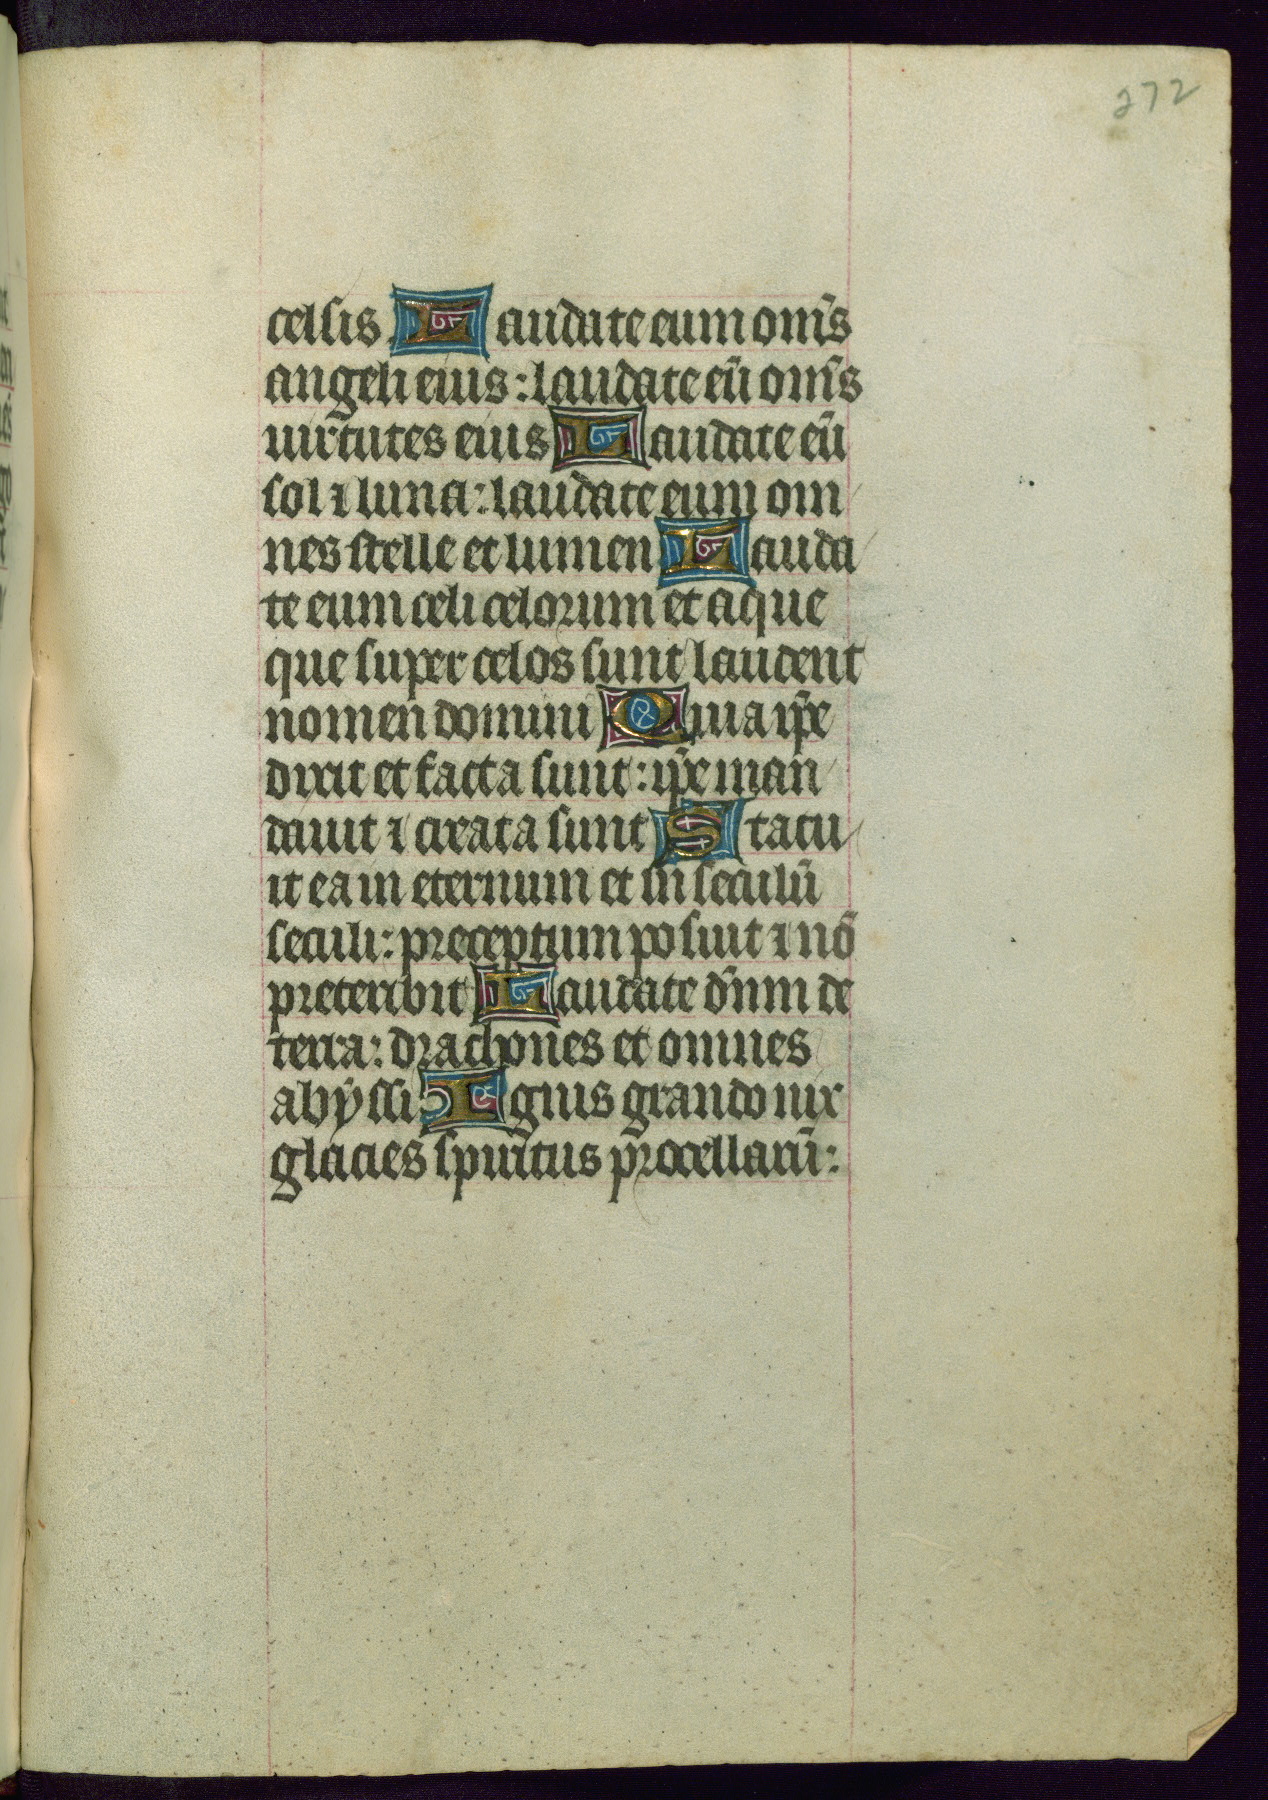 272
celsis Laudate eum om̄s
angeli eius: laudate eū om̄s
uirtutes eius Laudate eū
sol ⁊ luna: laudate eum om
nes stelle et lumen Lauda
te eum celi celorum et aque
que super celos sunt laudent
nomen domini Quia ip̄e
dixit et facta sunt: ip̄e man
dauit ⁊ creata sunt Statu
it ea in eternum et in seculū
seculi: preceptum posuit ⁊ nō
preteribit Laudate dn̄m de
terra: drachones et omnes
abyssi Ignis grando nix
glacies spiritus procellarū: